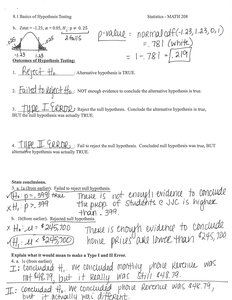 8.1 Basics of Hypothesis Testing Statistics - MATH 208
b. Zstat = -1.23, α = 0.05, H₁: p ≠ 0.25
2 tails
-1.23 1.23
p-value = normalcdf(-1.23, 1.23, 0, 1)
= .781 (white)
1 - .781 = .219
Outcomes of Hypothesis Testing:
1. Reject H₀ : Alternative hypothesis is TRUE.
2. Failed to reject H₀ : NOT enough evidence to conclude the alternative hypothesis is true.
3. TYPE I ERROR : Reject the null hypothesis. Conclude the alternative hypothesis is true,
BUT the null hypothesis was actually TRUE.
4. TYPE II ERROR : Fail to reject the null hypothesis. Conclude null hypothesis was true, BUT
alternative hypothesis was actually TRUE.
State conclusions.
a. 1a (from earlier). Failed to reject null hypothesis.
H₀ p = .399 true
x H₁ p > .399
There is not enough evidence to conclude
the prop. of students @ JJC is higher
than .399.
b. 1b (from earlier). Rejected null hypothesis.
x H₀: μ = $245,700
H₁: μ < $245,700
There is enough evidence to conclude
home prices are lower than $245,700
Explain what it would mean to make a Type I and II Error.
I: concluded H₁. We concluded monthly phone revenue was
not $48.79, but it really was still $48.79.
II: Concluded H₀. We concluded phone revenue was $48.79,
but it actually was different.